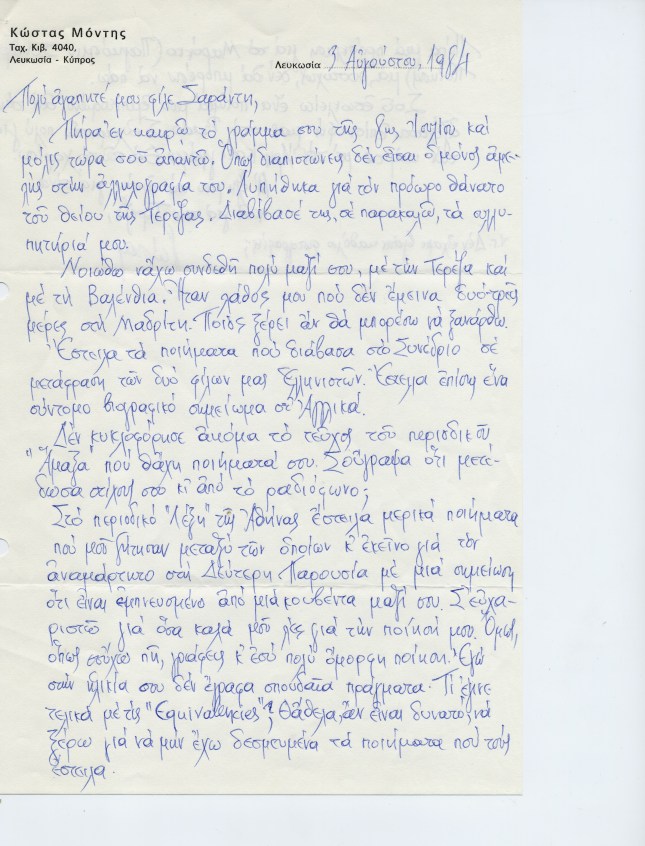 Κώστας Μόντης
Ταχ. Κιβ. 4040,
Λευκωσία - Κύπρος
Λευκωσία 3 Αὐγούστου, 1984
Πολύ ἀγαπητέ μου φίλε Σαράντη,
Πῆρα ἐν καιρῷ τό γράμμα σου τῆς 8ης Ἰουλίου καί
μόλις τώρα σοῦ ἀπαντῶ. Ὅπως διαπιστώνεις δέν εἶσαι ὁ μόνος ἀμε-
λής στήν ἀλληλογραφία του. Λυπήθηκα γιά τόν πρόωρο θάνατο
τοῦ θείου τῆς Τερέζας. Διαβίβασέ της, σέ παρακαλῶ, τά συλλυ-
πητήριά μου.
Νοιώθω νἄχω συνδεθῆ πολύ μαζί σου, μέ τήν Τερέζα καί
μέ τή Βαλένθια. Ἦταν λάθος μου πού δέν ἔμεινα δυό-τρεῖς
μέρες στή Μαδρίτη. Ποιός ξέρει ἄν θά μπορέσω νά ξανάρθω.
Ἔστειλα τά ποιήματα πού διάβασα στό Συνέδριο σέ
μετάφραση τῶν δυό φίλων μας ἑλληνιστῶν. Ἔστειλα ἐπίσης ἕνα
σύντομο βιογραφικό σημείωμα στ' Ἀγγλικά.
Δέν κυκλοφόρησε ἀκόμα τό τεῦχος τοῦ περιοδικοῦ
"Ἅμαξα" πού θἄχη ποιήματά σου. Σοὔγραφα ὅτι μετέ-
δωσα στίχους σου κι ἀπό τό ραδιόφωνο;
Στό περιοδικό "Λέξη" τῆς Ἀθήνας ἔστειλα μερικά ποιήματα
πού μοῦ ζήτησαν μεταξύ τῶν ὁποίων κ' ἐκεῖνο γιά τόν
ἀναμάρτητο στή Δεύτερη Παρουσία μέ μιά σημείωση
ὅτι εἶναι ἐμπνευσμένο ἀπό μιά κουβέντα μαζί σου. Σ' εὐχα-
ριστῶ γιά ὅσα καλά μοῦ λές γιά τήν ποίησή μου. Ὅμως,
ὅπως σοὔχω πῆ, γράφεις κ' ἐσύ πολύ ὄμορφη ποίηση. Ἐγώ
στήν ἡλικία σου δέν ἔγραφα σπουδαῖα πράγματα. Τί ἔγινε
τελικά μέ τίς "Equivalencies"; Θἄθελα, ἄν εἶναι δυνατό, νά
ξέρω γιά νά μήν ἔχω δεσμευμένα τά ποιήματα πού τούς
ἔστειλα.